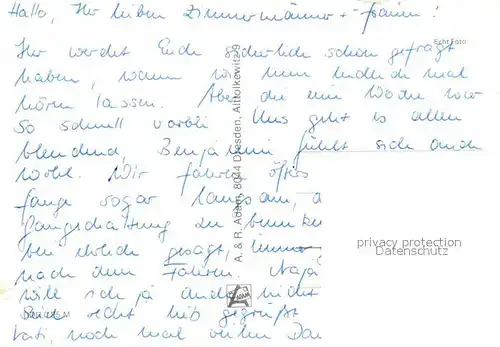 Hallo, Ihr lieben Zimmermänner + -frauen!
Ihr werdet Euch sicherlich schon gefragt
haben, wann wir nun endlich mal
hören lassen. Aber die eine Woche war
so schnell vorbei. Uns geht es allen
blendend, Benjamin fühlt sich auch
wohl. Wir fahren öfters
sogar langsam, a
Gangschaltung zu
bin ehrlich gesagt, immer
nach dem Fahren. Naja
will ich ja nicht
Seid recht lieb gegrüßt
Vati, noch mal vielen Dan
Echt Foto
A. & R. Adam, 8044 Dresden, Alttolkewitz 9
ADAM
privacy protection
Datenschutz